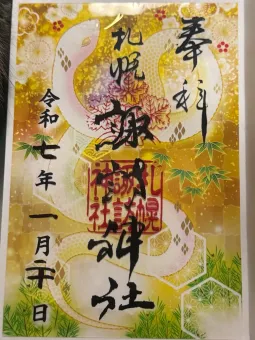 奉拝
札幌諏訪神社
札幌
諏訪
神社
令和七年一月二十日